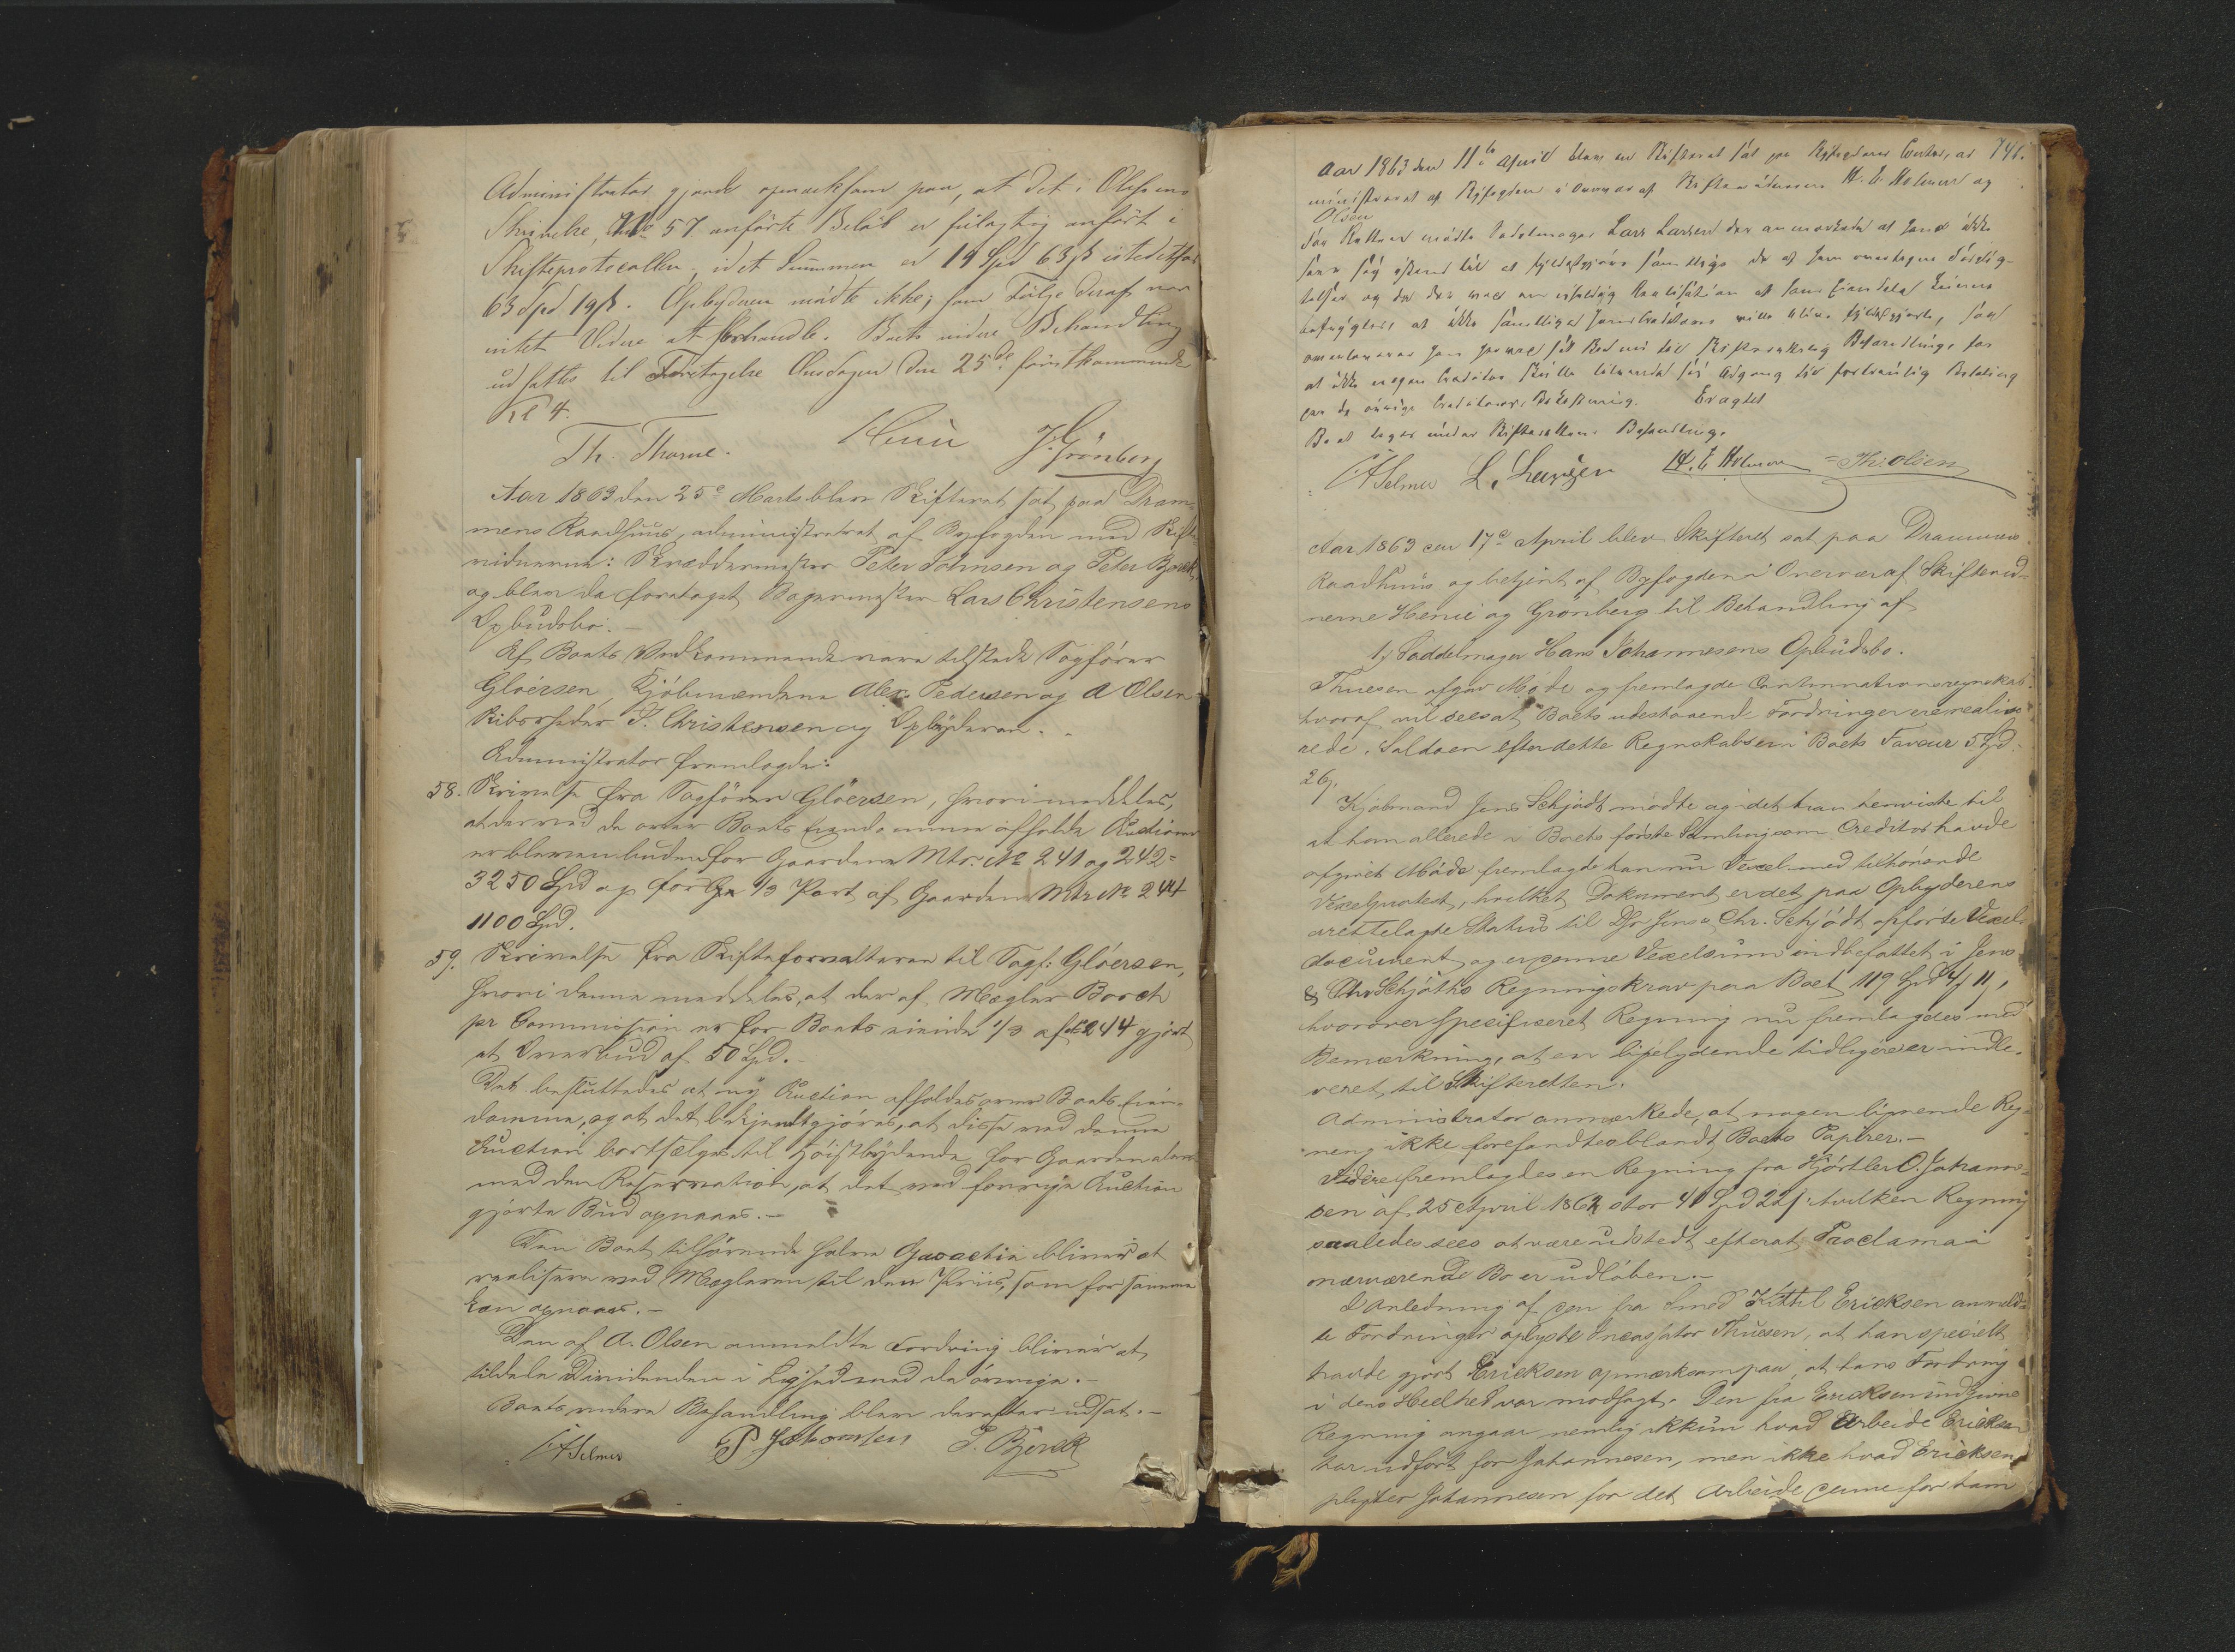 Administrator gjorde opmærksom paa, at det i Olsens
Skrivelse, No 57 anførte Beløb er feilagtig anført i
Skifteprotocollen, idet Summen er 19 Spd 63 ß istedetfor
63 Spd 19 ß. Opbyderen mødte ikke; som Følge deraf var
intet Videre at forhandle. Boets videre Behandling
udsattes til Foretagelse Onsdagen den 25de førstkommende
Kl 4.
Th. Thorne. Henie J. Grönberg
Aar 1863 den 25e Marts blev Skifteret sat paa Dram-
mens Raadhuus, administreret af Byfogden med Skifte-
vidnerne: Skræddermester Peter Johnsen og Peter Bjerck,
og blev da foretaget Bagermester Lars Christensens
Opbudsbo.
Af Boets Vedkommende vare tilstede Sagfører
Gløersen, Kjøbmændene Alex. Pedersen og A Olsen
 J. Christensen og Opbyderen.
Administrator fremlagde:
58. Skrivelse fra Sagfører Gløersen, hvori meddeles,
at der ved de over Boets Eiendomme afholdte Auctioner
er bleven buden for Gaardene Mtr. No 241 og 242 =
3250 Spd og for 1/3 Part af Gaarden Mtr No 244
1100 Spd.
59. Skrivelse fra Skifteforvalteren til Sagf: Gløersen,
hvori denne meddeles, at der af Mægler Borch
pr Commission er for Boets eiende 1/3 af 244 gjort
et Overbud af 50 Spd.
Det besluttedes at ny Auction afholdes over Boets Eien-
domme, og at det bekjendtgjøres, at disse ved denne
Auction bortsælges til Høistbydende for Gaardene
med den Reservation, at det ved forrige Auction
gjorte Bud opnaaes.
Den Boet tilhørende halve bliver at
realisere ved Mægleren til den Priis, som for samme
kan opnaaes.
Den af A. Olsen anmeldte Fordring bliver at
tildele Dividenden i Lighed med de øvrige.
Boets videre Behandling blev derefter udsat.
Selmer P Johnsen P. Bjerck
Aar 1863 den 11te April blev en Skifteret sat paa Byfogdens Contor, ad- 746.
ministreret af Byfogden i Overvær af Skiftevidnerne H. E. Holmen og
Olsen
For Retten mødte Sadelmager Lars Larsen der anmærkede at han ikke
saa sig istand til at fyldestgjøre samtlige de af ham overtagne Forplig-
telser og da der ved en Realisation af hans Eiendele kunne
befrygtes, at ikke samtlige hans Creditorer ville blive fyldestgjorte, saa
overleverer han herved sit Bo til skifteretlig Behandling, for
at ikke nogen Creditor skulle tilvende sig Adgang til fortrinlig Betaling
paa de øvrige Creditorers Bekostning. Eragtet
Boet tages under Skifterettens Behandling.
Selmer L. Larssen H. E. Holmen Th: Olsen
Aar 1863 den 17e April blev Skifteret sat paa Drammens
Raadhuus og betjent af Byfogden i Overvær af Skiftevid-
nerne Henie og Grønberg til Behandling af
1, Saddelmager Hans Johannesens Opbudsbo.
Thuesen afgav Møde og fremlagde Continuationsregnskab
hvoraf vil sees at Boets udestaaende Fordringer ere realise-
rede. Saldoen efter dette Regnskab er i Boets Faveur 5 Spd.
26 ß.
Kjøbmand Jens Schjødt mødte og idet han henviste til
at han allerede i Boets første Samling som Creditor havde
afgivet Møde fremlagde han nu Vexel med tilhørende
Vexelprotest, hvilket Dokument er det paa Opbyderens
 Status til Hr Jens Chr. Schjödt opførte Vexel-
document og er denne Vexelsum indbefattet i Jens
& Chr Schjøths Regningskrav paa Boet 119 Spd 4 11,
hvorover specificeret Regning nu fremlagdes med
Bemærkning, at en ligelydende tidligere er indle-
veret til Skifteretten.
Administrator anmærkede, at nogen lignende Reg-
ning ikke forefandtes blandt Boets Papirer.
Videre fremlagdes en Regning fra O. Johanne-
sen af 25 April 1862 stor 40 Spd 22 ß: hvilken Regning
saaledes sees at være udstedt efterat Proclama i
nærværende Bo er udløben.
I Anledning af den fra Smed Kittil Ericksen anmeld-
te Fordringer oplyste Incassator Thuesen, at han specielt
havde gjort Ericksen opmærksom paa, at hans Fordring
i dens Heelhed var modsagt. Den fra Ericksen indgivne
Regning angaar nemlig ikkun hvad Arbeide Ericksen
har udført for Johannesen, men ikke hvad Ericksen
pligter Johannesen for det Arbeide denne for ham